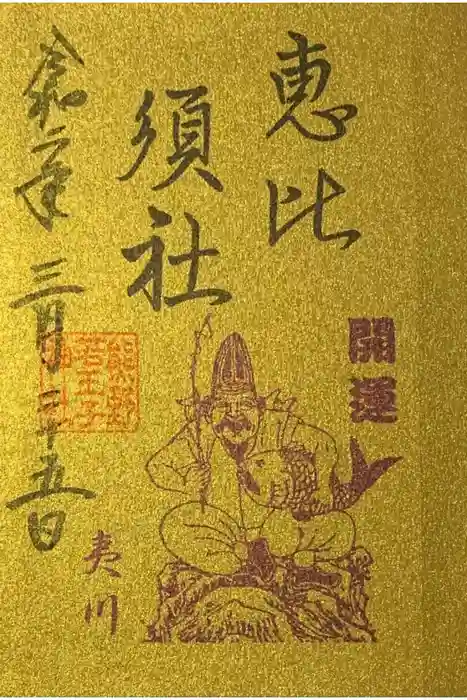 恵比
須社
開運
令和二年三月二十五日
熊野
若王子
神社
夷川